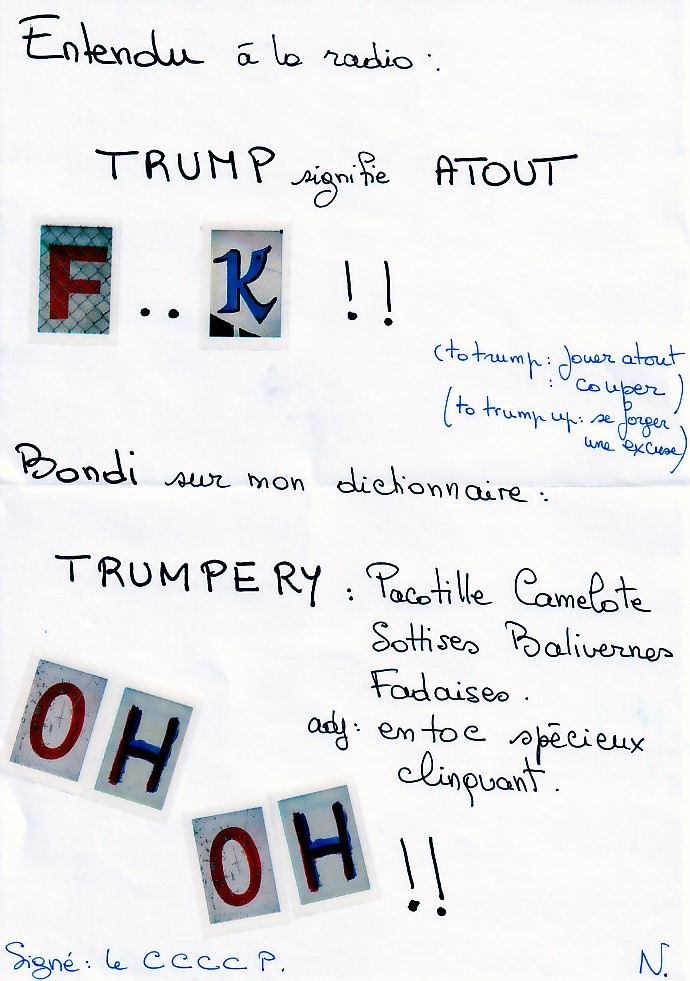 Entendu à la radio :
TRUMP signifie ATOUT
F . . K ! !
(to trump : jouer atout
: couper)
(to trump up : se forger
une excuse)
Bondi sur mon dictionnaire :
TRUMPERY : Pacotille Camelote
Sottises Balivernes
Fadaises .
adj : en toc spécieux
clinquant .
OH
OH ! !
Signé : le C C C C P. N.